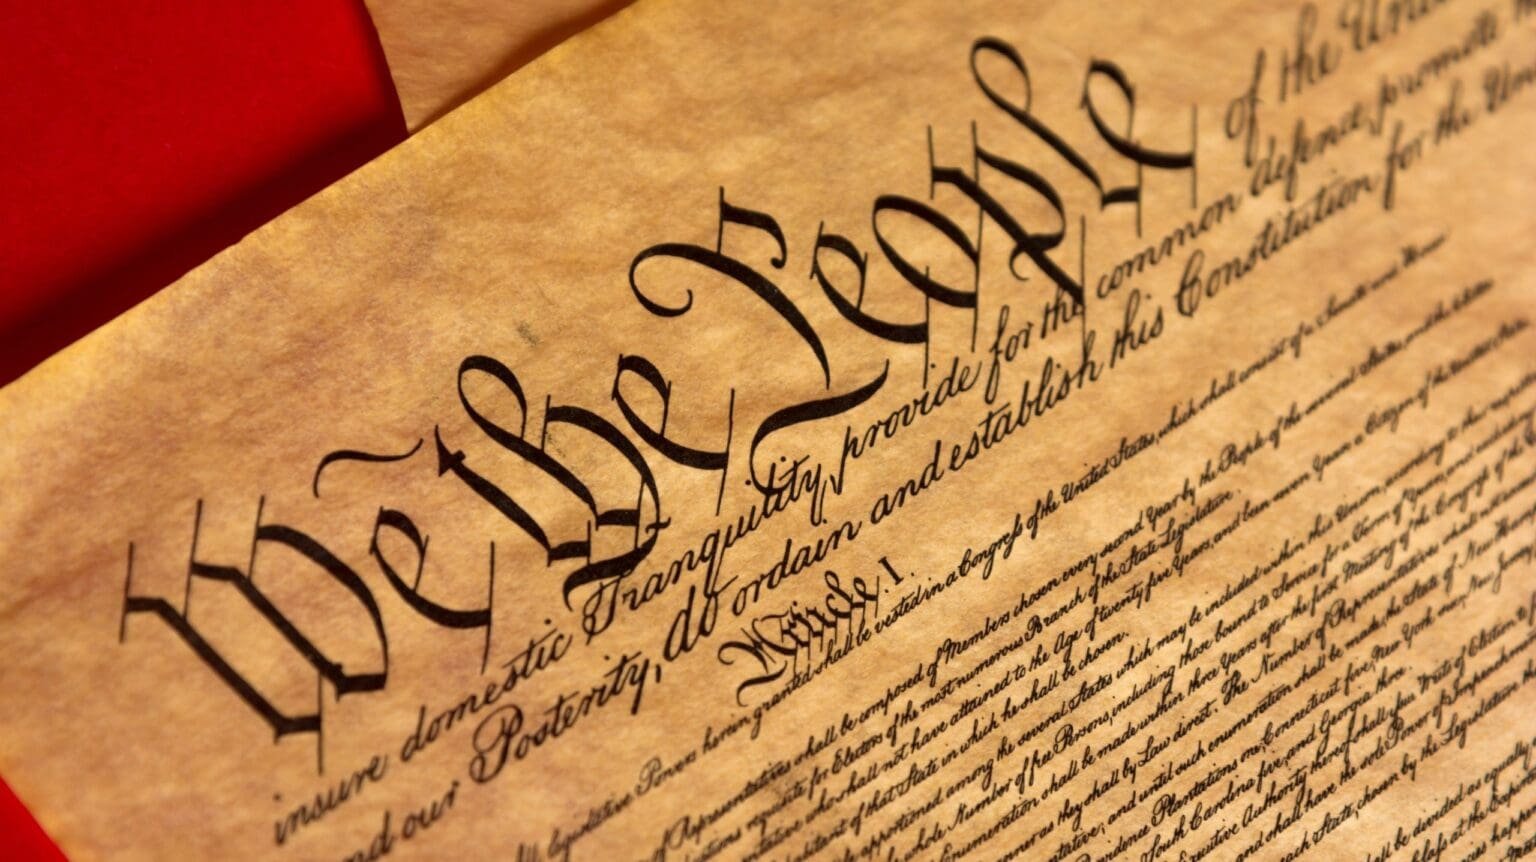 We the People of the Uni
insure domestic Tranquility, provide for the common defence, promote
and our Posterity, do ordain and establish this Constitution for the Uni
Article. I.
Legislative Powers herein granted shall be vested in a Congress of the United States, which shall consist of a Senate and House
of Representatives shall be composed of Members chosen every second Year by the People of the several States, and the
requisite for Electors of the most numerous Branch of the State Legislature.
who shall not have attained to the Age of twenty five Years, and been seven Years a Citizen of the United
of that State in which he shall be chosen.
apportioned among the several States which may be included within this Union, according to their
whole Number of free Persons, including those bound to Service for a Term of Years, and
Enumeration shall be made within three Years after the first Meeting of the Congress of the
as they shall by Law direct. The Number of Representatives shall
and until such enumeration shall be made, the State of New
Providence Plantations one, Connecticut five, New York six, New Jersey
South Carolina five, and Georgia three.
Executive Authority thereof shall issue Writs of Election to
and shall have the sole Power of Impeachment
each State, chosen by the Legislature
be divided as equally
at the